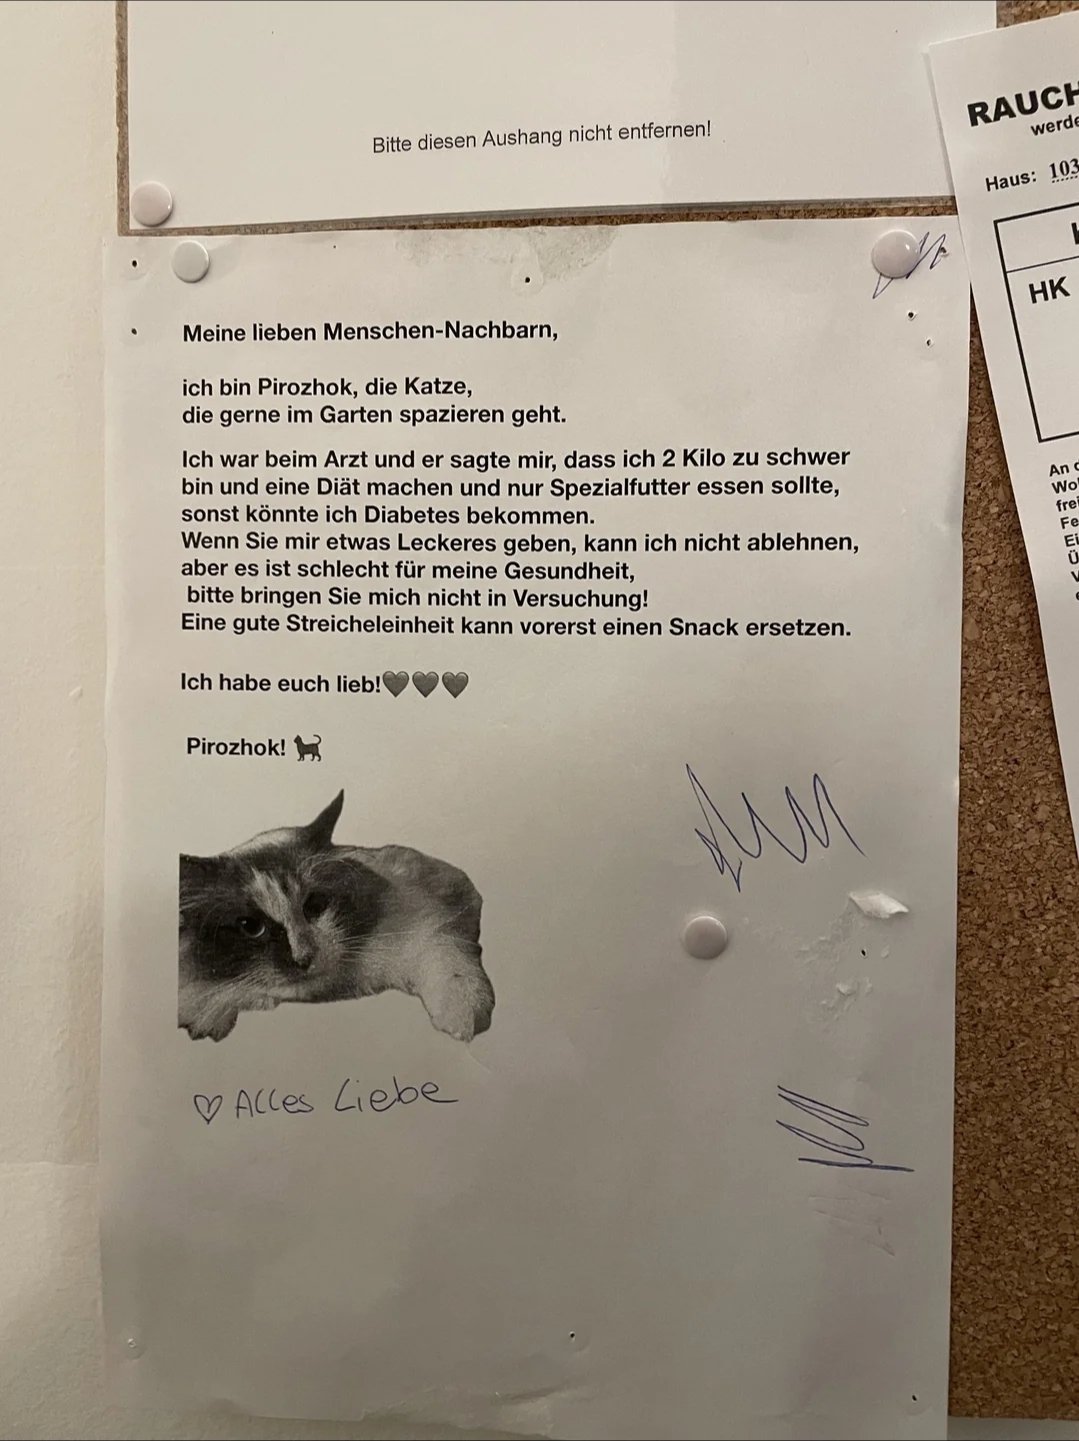 Bitte diesen Aushang nicht entfernen!
Meine lieben Menschen-Nachbarn,
ich bin Pirozhok, die Katze,
die gerne im Garten spazieren geht.
Ich war beim Arzt und er sagte mir, dass ich 2 Kilo zu schwer
bin und eine Diät machen und nur Spezialfutter essen sollte,
sonst könnte ich Diabetes bekommen.
Wenn Sie mir etwas Leckeres geben, kann ich nicht ablehnen,
aber es ist schlecht für meine Gesundheit,
bitte bringen Sie mich nicht in Versuchung!
Eine gute Streicheleinheit kann vorerst einen Snack ersetzen.
Ich habe euch lieb!🖤🖤🖤
Pirozhok! 🐈‍⬛
♡ Alles Liebe
RAUCH
werde
Haus: 103
HK
An
Wo
fre
Fe
Ei
Ü